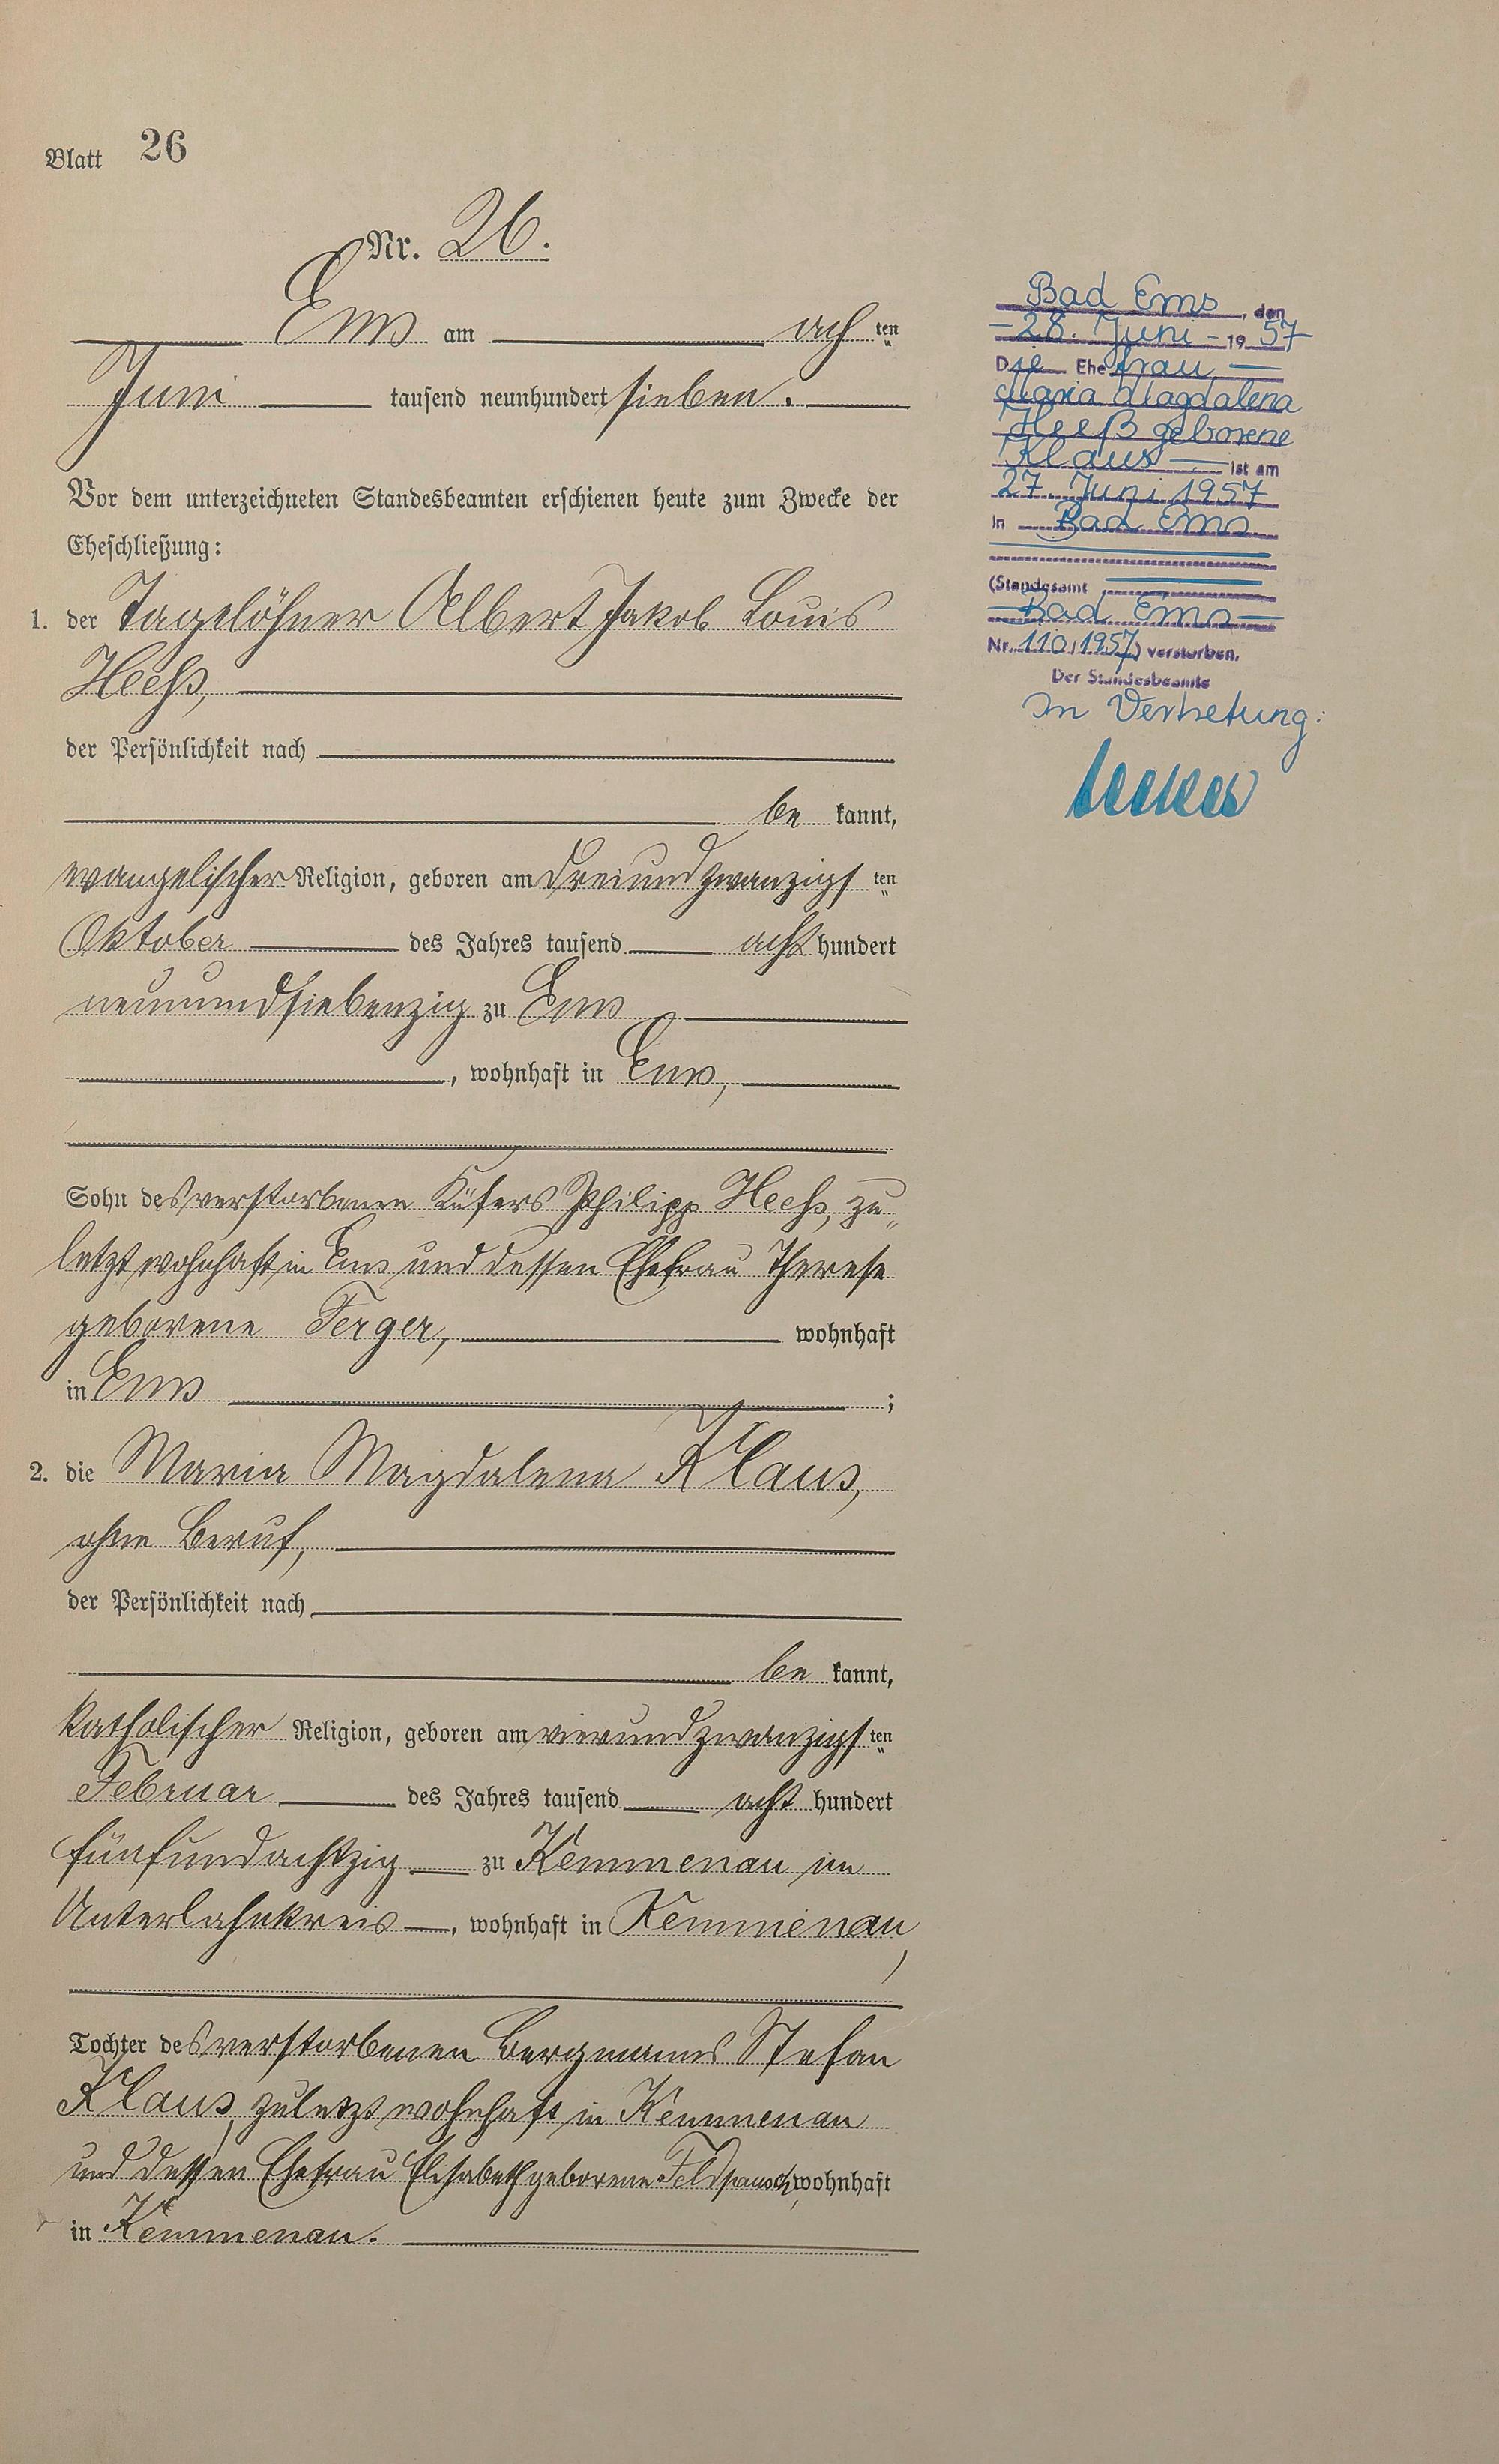 Blatt 26
Nr. 26.
Ems am ach ten
Juni tausend neunhundert sieben.
Vor dem unterzeichneten Standesbeamten erschienen heute zum Zwecke der
Eheschließung:
1. der Tagelöhner Albert Jakob Louis
Heeß,
der Persönlichkeit nach
be kannt,
evangelischer Religion, geboren am dreiundzwanzigs ten
Oktober des Jahres tausend acht hundert
neunundsiebenzig zu Ems
, wohnhaft in Ems,
Sohn des verstorbenen Küfers Philipp Heeß, zu„
letzt wohnhaft in Ems und dessen Ehefrau Therese
geborene Ferger, wohnhaft
in Ems ;
2. die Maria Magdalena Klaus,
ohne Beruf,
der Persönlichkeit nach
be kannt,
katholischer Religion, geboren am vierundzwanzigs ten
Februar des Jahres tausend acht hundert
fünfundachtzig zu Kemmenau im
Unterlahnkreis , wohnhaft in Kemmenau,
Tochter des verstorbenen Bergmanns Stefan
Klaus, zuletzt wohnhaft in Kemmenau
und dessen Ehefrau Elisabeth geborene Feldpausch, wohnhaft
in Kemmenau.
Bad Ems, den
- 28. Juni - 19 57
Die Ehefrau
Maria Magdalena
Heeß geborene
Klaus ist am
27. Juni 1957
in Bad Ems
(Standesamt
Bad Ems
Nr. 110/1957) verstorben.
Der Standesbeamte
In Vertretung: